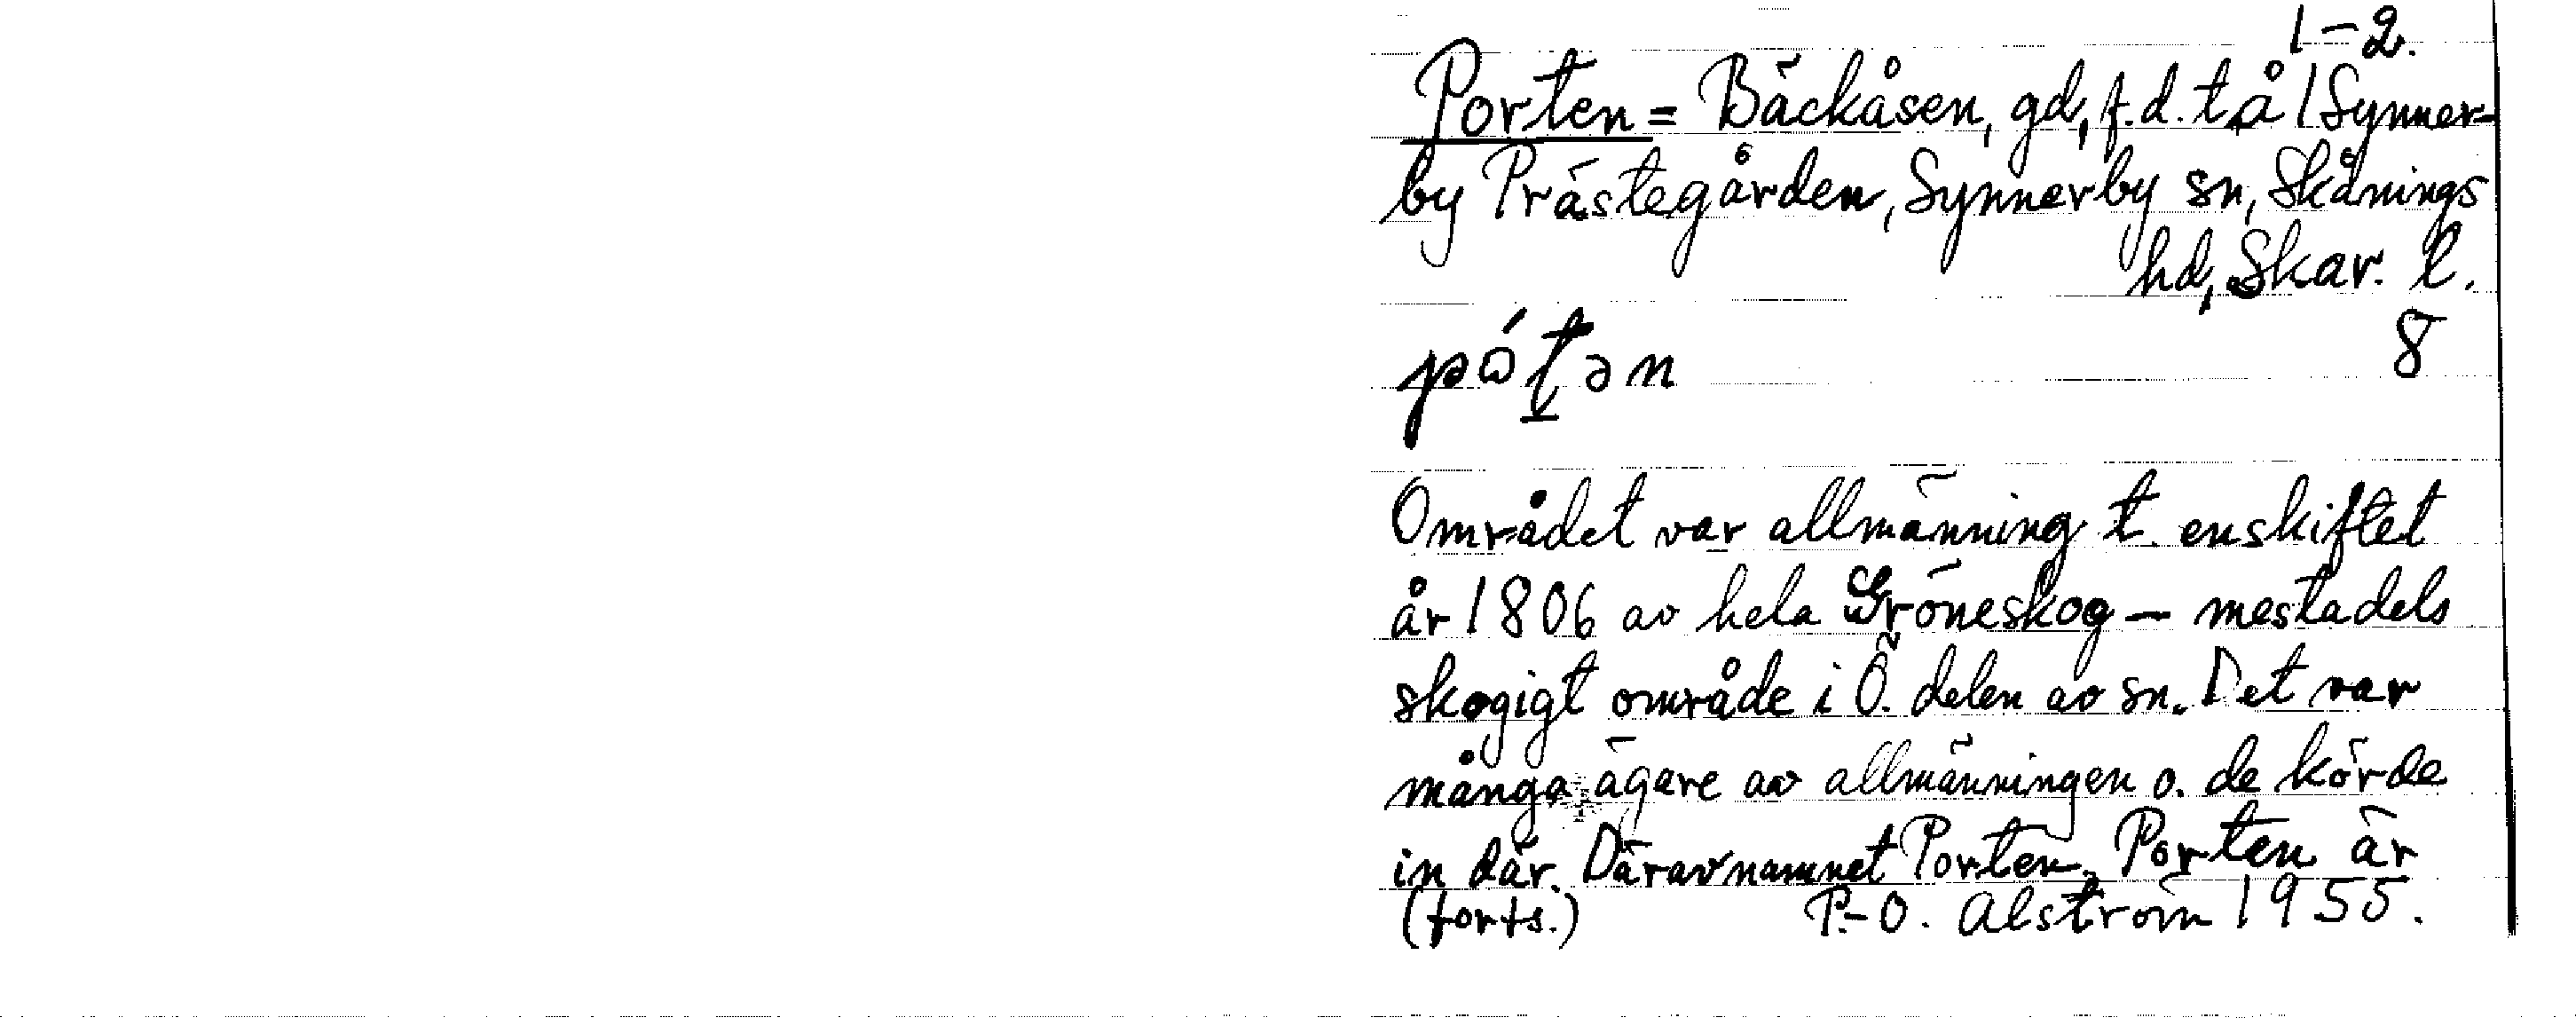 1-2.
Porten = Bäckåsen, gd, f.d. t å 1 Synner-
by Prästegården, Synnerby sn, Skånings
hd, Skar. l.
8
Området var allmänning t. enskiftet
år 1806 av hela Gröneskog — mestadels
skogigt område i Ö. delen av sn. Det var
många ägare av allmänningen o. de körde
in där. Därav namnet Porten. Porten är
(forts.) P.-O. Alström 1955.